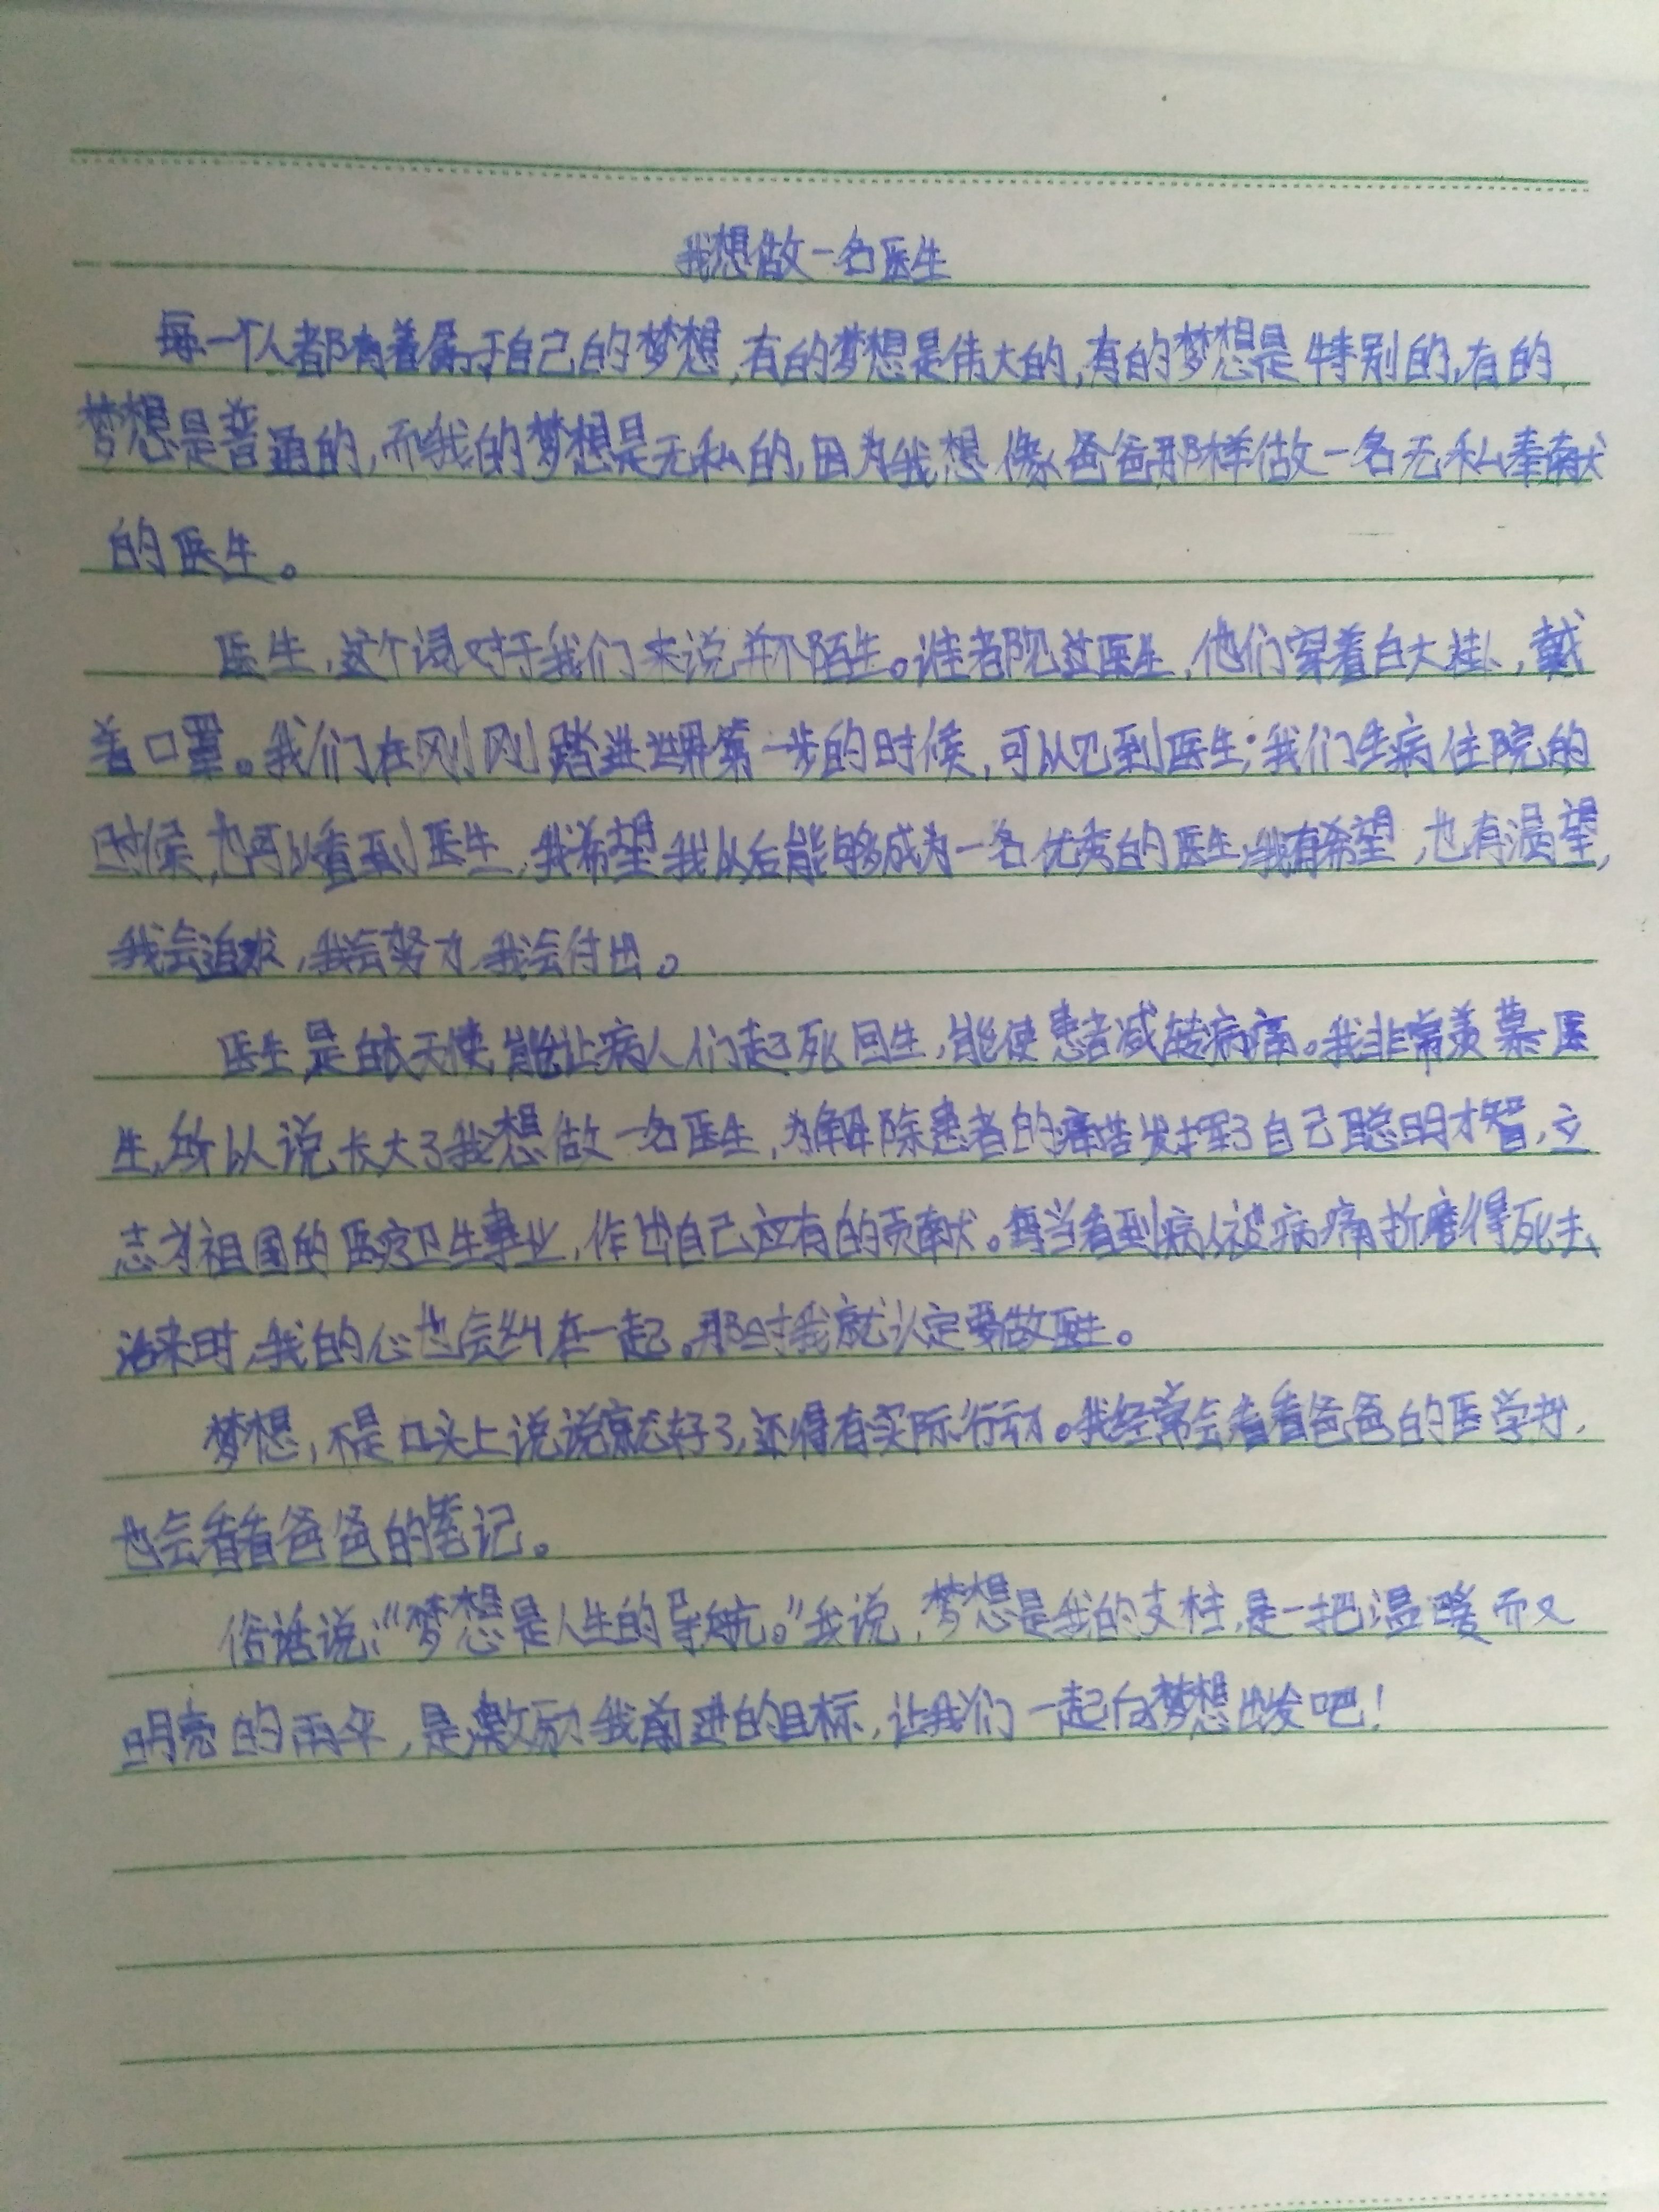 我想做一名医生
每一个人都有着属于自己的梦想,有的梦想是伟大的,有的梦想是特别的,有的
梦想是普通的,而我的梦想是无私的,因为我想像爸爸那样做一名无私奉献
的医生。
医生,这个词对于我们来说并不陌生。谁都见过医生,他们穿着白大褂,戴
着口罩。我们在刚刚踏进世界第一步的时候,可以见到医生;我们生病住院的
时候,也可以看到医生,我希望我以后能够成为一名优秀的医生,我有希望,也有渴望,
我会追求,我会努力,我会付出。
医生是白衣天使,能让病人们起死回生,能使患者减轻病痛。我非常羡慕医
生,所以说长大了我想做一名医生,为解除患者的痛苦发挥了自己聪明才智,立
志为祖国的医疗卫生事业,作出自己应有的贡献。每当看到病人被病痛折磨得死去
活来时,我的心也会纠在一起。那时我就认定要做医生。
梦想,不是口头上说说就好了,还得有实际行动。我经常会看看爸爸的医学书,
也会看看爸爸的笔记。
俗话说:“梦想是人生的导航。”我说,梦想是我的支柱,是一把温暖而又
明亮的雨伞,是激励我前进的目标,让我们一起向梦想出发吧!